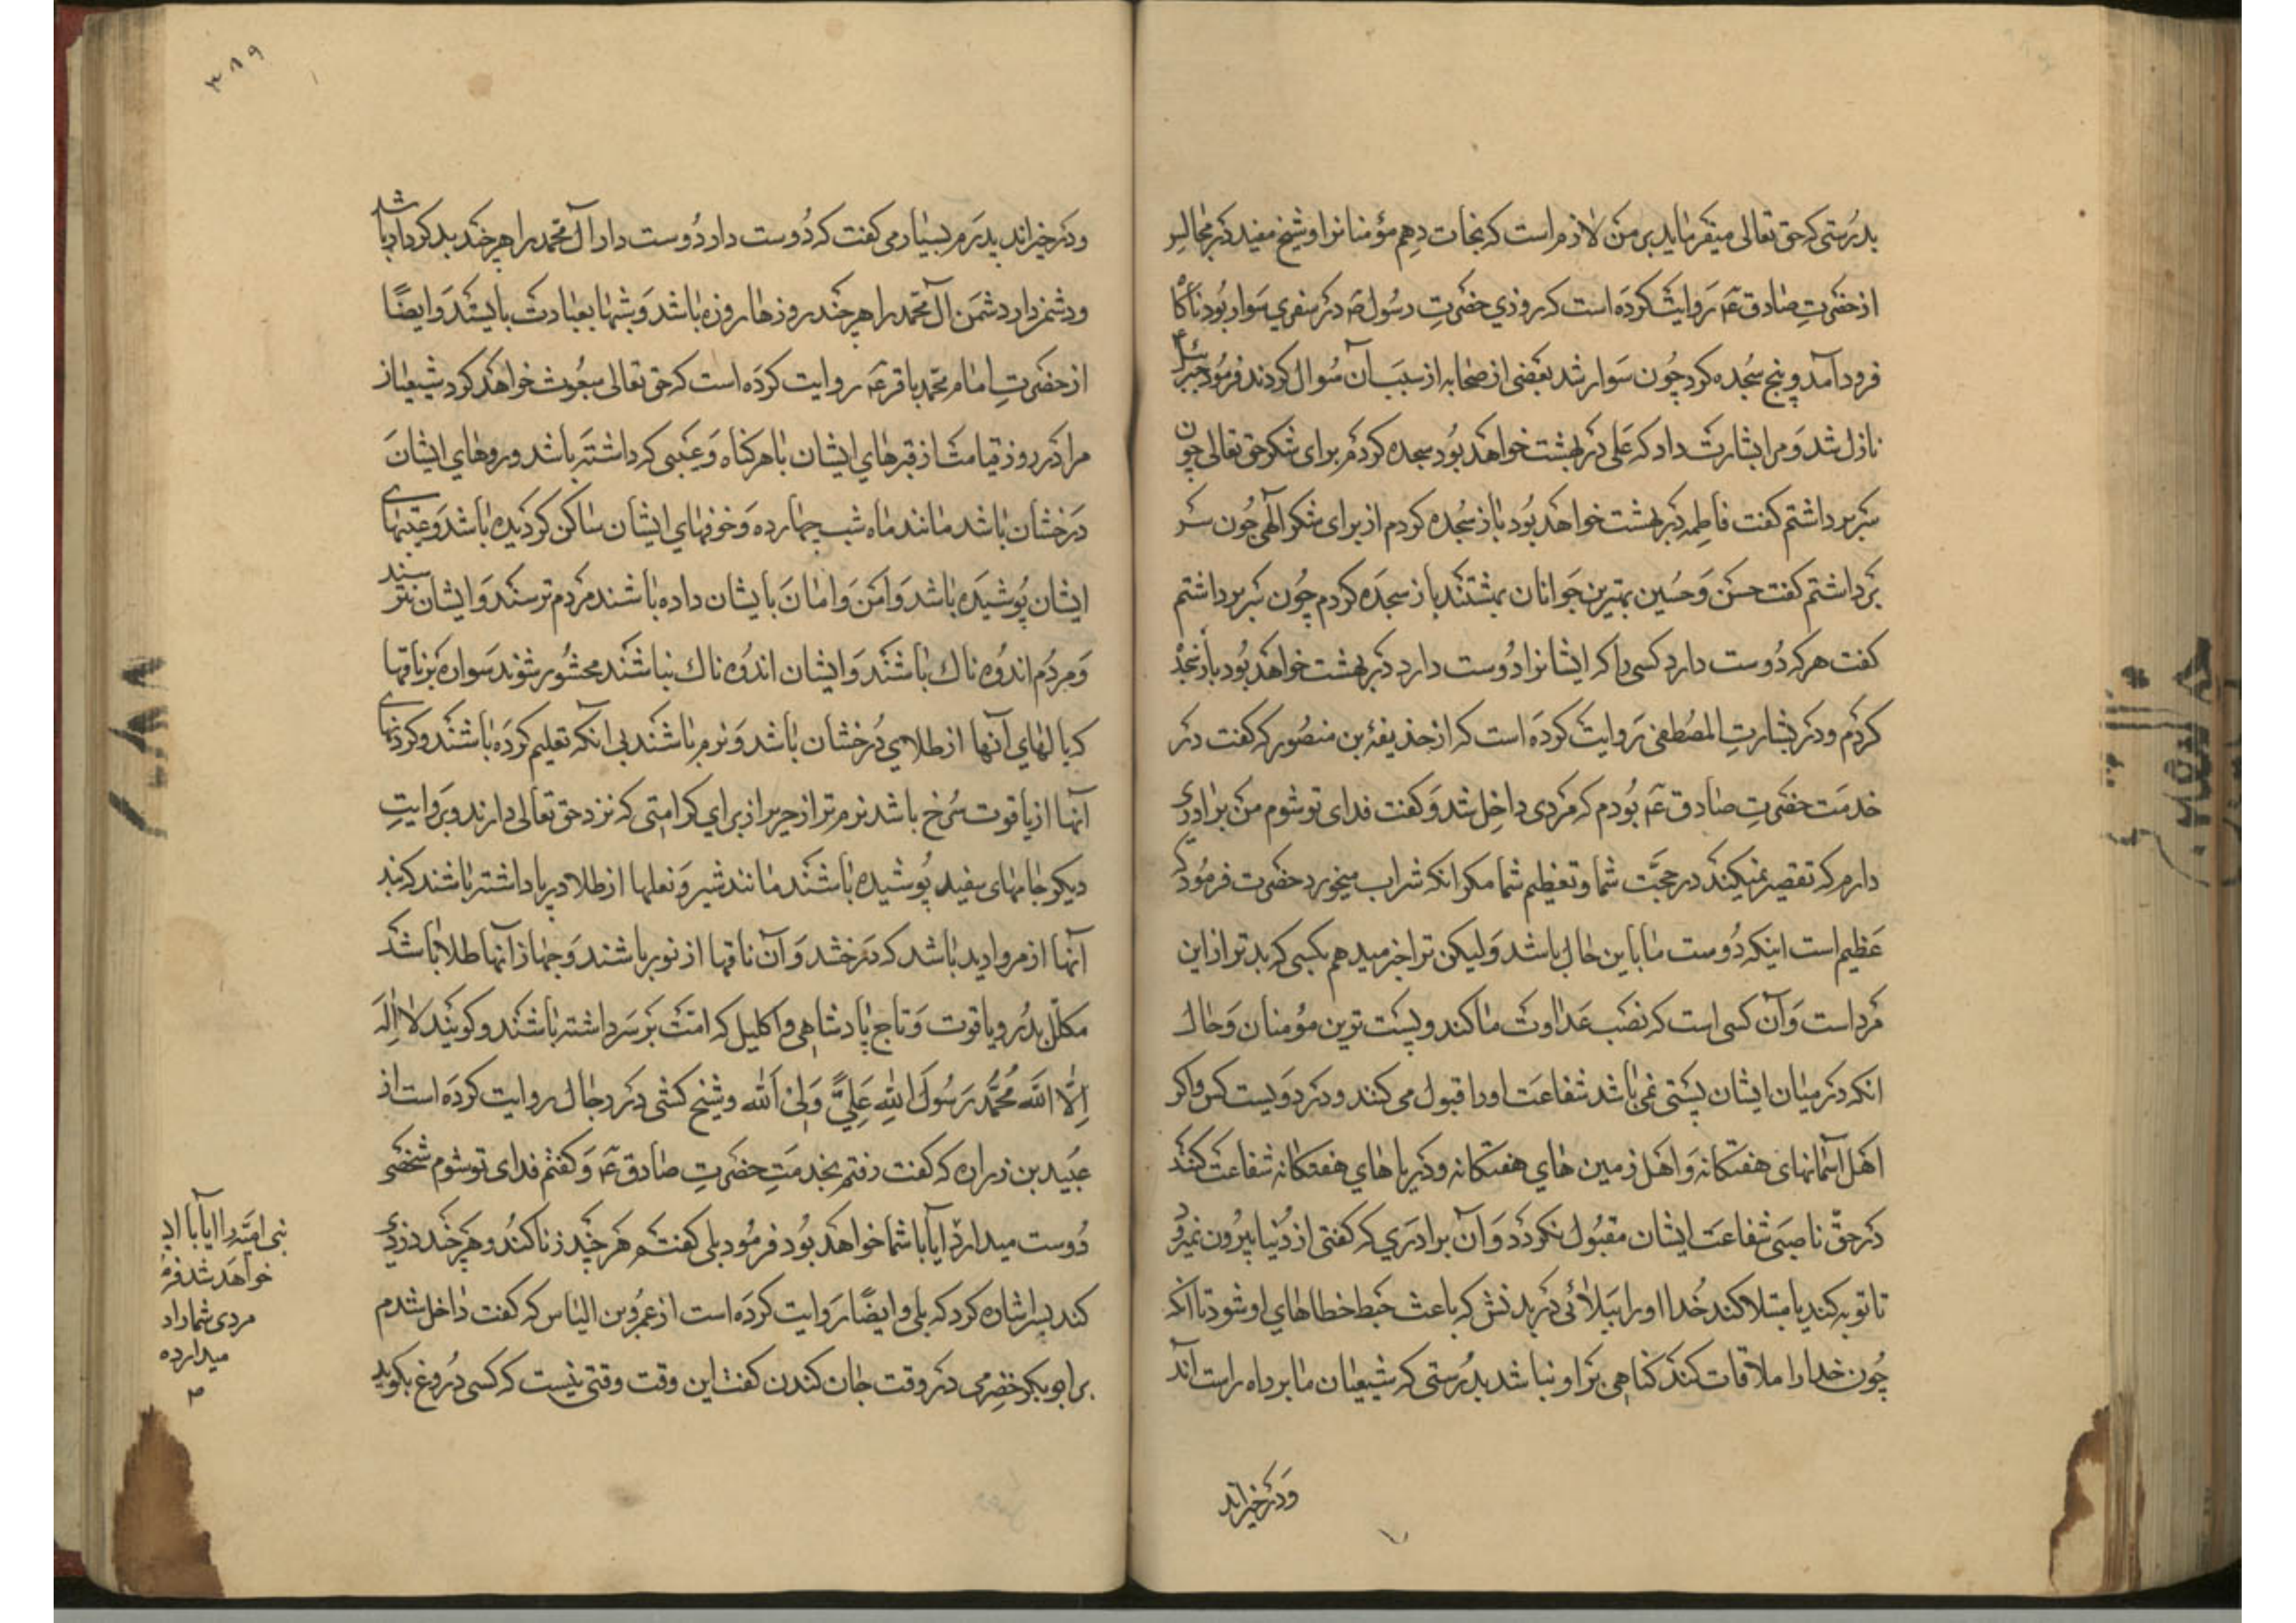 بدرستی که حق تعالی میفرماید بر من لازم است که نجات دهم مؤمنانرا و شیخ مفید در مجالس
از حضرت صادق ع روایت کرده است که روزی حضرت رسول ص در سفری سوار بود ناگاه
فرود آمد و پنج سجده کرد چون سوار شد بعضی از صحابه از سبب آن سوال کردند فرمود جبرئیل
نازل شد و مرا بشارت داد که علی در بهشت خواهد بود سجده کردم برای شکر حق تعالی چون
سر برداشتم گفت فاطمه در بهشت خواهد بود باز سجده کردم از برای شکر الهی چون سر
برداشتم گفت حسن و حسین بهترین جوانان بهشتند باز سجده کردم چون سر برداشتم
گفت هر که دوست دارد کسی را که ایشانرا دوست دارد در بهشت خواهد بود باز سجده
کردم و در بشارت المصطفی روایت کرده است که از حذیفهٔ بن منصور که گفت در
خدمت حضرت صادق ع بودم که مردی داخل شد و گفت فدای تو شوم من برادری
دارم که تقصیر نمیکند در محبّت شما و تعظیم شما مگر انکه شراب میخورد حضرت فرمود که
عظیم است اینکه دوست ما باین حال باشد ولیکن ترا خبر میدهم بکسی که بدتر از این
مرد است و آن کسی است که نصب عداوت ما کند و پست ترین مؤمنان و حال
انکه در میان ایشان پستی نمی باشد شفاعت او را قبول می کنند در دویست کس و اگر
اهل آسمانهای هفتگانه و اهل زمین های هفتگانه و دریاهای هفتگانه شفاعت کنند
در حقّ ناصبی شفاعت ایشان مقبول نگردد و آن برادری که گفتی از دنیا بیرون نمیرود
تا توبه کند یا مبتلا کند خدا او را ببلائی در بدنش که باعث حبط خطاهای او شود تا انکه
چون خدا را ملاقات کند گناهی بر او نباشد بدرستی که شیعیان ما بر راه راست اند
و در خیراند
۳۸۹
و در خیراند پدرم بسیار می گفت که دوست دار دوست دار آل محمد را هر چند بد کردار باشد
و دشمن دار دشمن آل محمد را هر چند روزها روزه باشد و شبها بعبادت بایستد و ایضًا
از حضرت امام محمد باقر ع روایت کرده است که حق تعالی مبعوث خواهد کرد شیعیان
مرا در روز قیامت از قبرهای ایشان با هر گناه و عیبی که داشته باشد و روهای ایشان
درخشان باشد مانند ماه شب چهارده و خوفهای ایشان ساکن گردیده باشد و عیبهای
ایشان پوشیده باشد و امن و امان بایشان داده باشند مردم ترسند و ایشان نترسند
و مردم اندوه ناک باشند و ایشان اندوه ناک نباشند محشور شوند سواره بر ناقها
که بالهای آنها از طلای درخشان باشد و نرم باشند بی انکه تعلیم کرده باشند و گردنهای
آنها از یاقوت سرخ باشد نرم تر از حریر از برای کرامتی که نزد حق تعالی دارند و بروایت
دیگر جامهای سفید پوشیده باشند مانند شیر و نعلها از طلا در پا داشته باشند که بند
آنها از مروارید باشد که درخشد و آن ناقها از نور باشند و جهاز آنها طلا باشد
مکلّل بدر و یاقوت و تاج پادشاهی و اکلیل کرامت بر سر داشته باشند و گویند لا اِلٰهَ
اِلَّا اللّٰه مُحَمَّد رَسُولَ اللّٰهِ عَلِیٌّ وَلِیُّ اللّٰه و شیخ کشی در رجال روایت کرده است از
عبید بن زراره که گفت رفتم بخدمت حضرت صادق ع و گفتم فدای تو شوم شخصی
دوست میدارد ایا با شما خواهد بود فرمود بلی گفتم هر چند زنا کند و هر چند دزدی
کند بسر اشاره کرد که بلی و ایضًا روایت کرده است از عمرو بن الیاس که گفت داخل شدم
بر ابو بکر حضرمی در وقت جان کندن گفت این وقت وقتی نیست که کسی دروغ بگوید
بنی امیّه را ایا با
خواهد شد
مردی شما را
میدارد